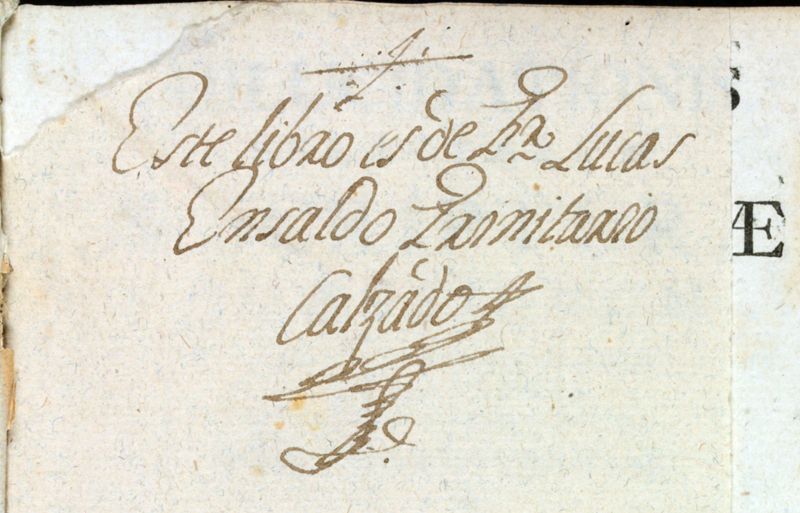 Este libro es de Fr. Lucas
Ensaldo Trinitario
Calzado
S
Æ